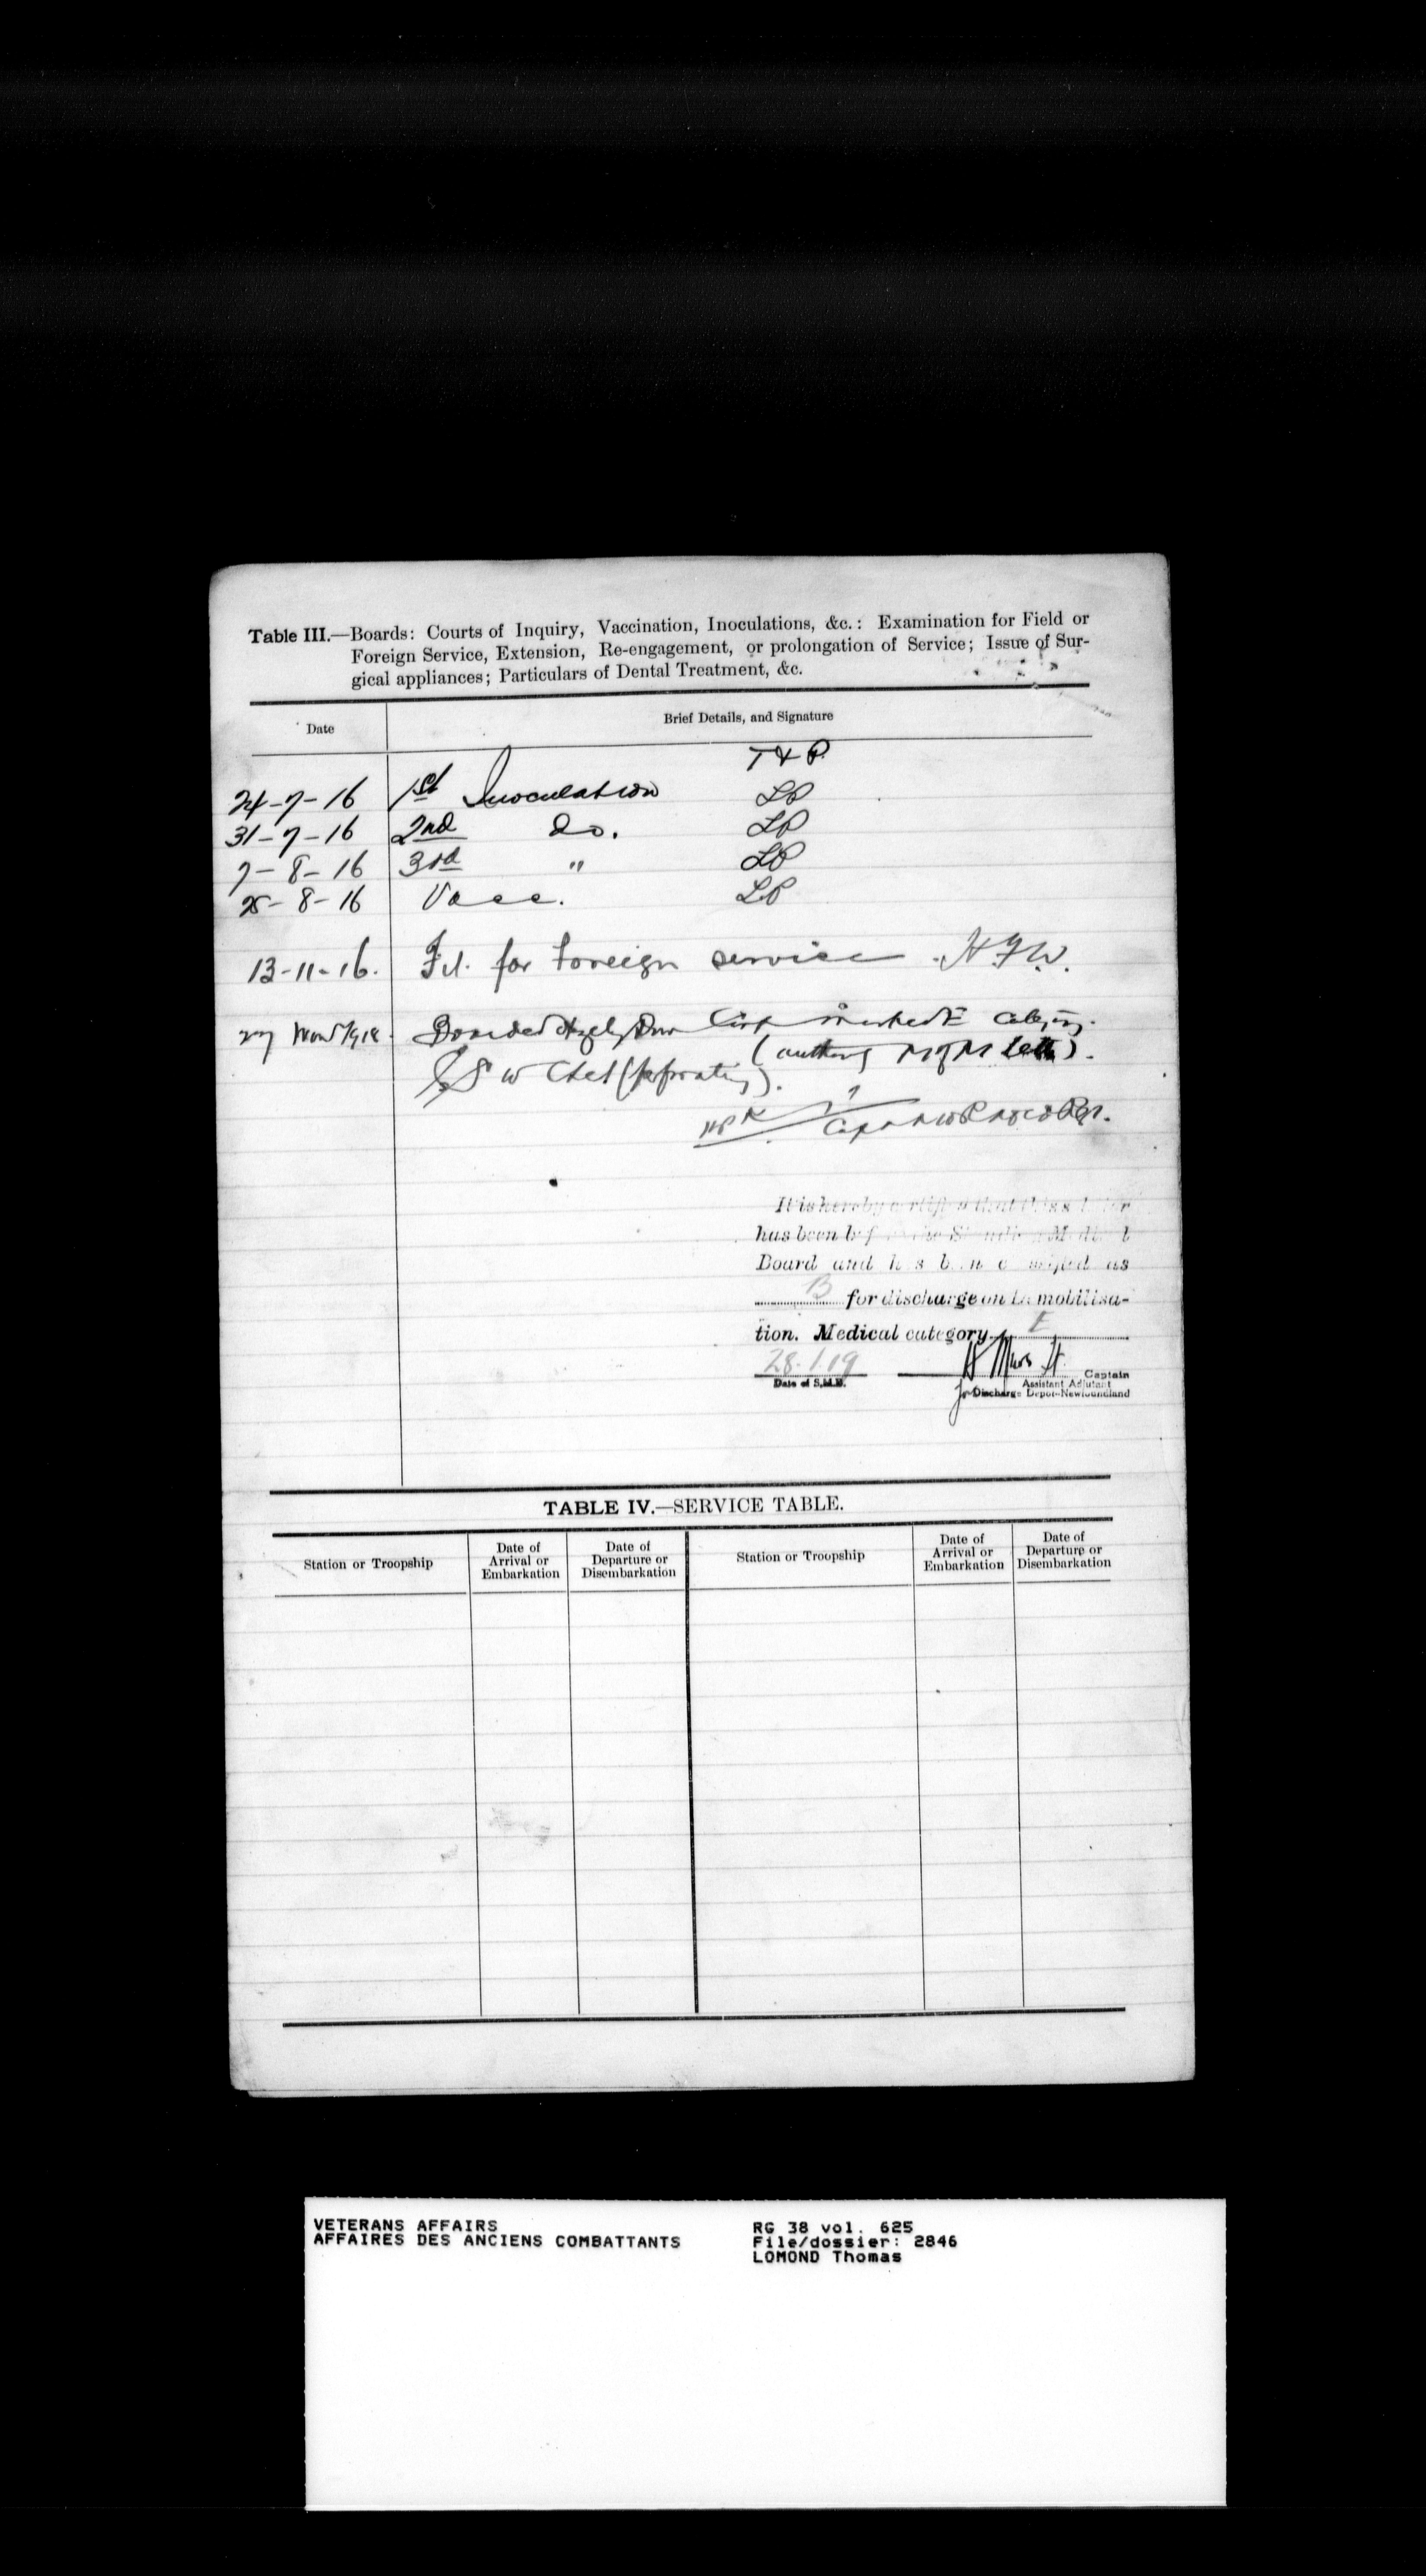 Table III.—Boards: Courts of Inquiry, Vaccination, Inoculations, &c.: Examination for Field or
Foreign Service, Extension, Re-engagement, or prolongation of Service; Issue of Sur-
gical appliances; Particulars of Dental Treatment, &c.
Date Brief Details, and Signature
T & P.
24-7-16 1st Inoculation LP
31-7-16 2nd Do. LP
7-8-16 3rd " LP
25-8-16 Vacc. LP
13-11-16. Fit for foreign service H.F.W.
27 Nov 1918. Boarded Hazely Down Camp marked E category.
(authority M of M letter).
G S W Chest (perforating).
Capt
It is hereby certified that this soldier
has been before the Standing Medical
Board and has been classified as
B for discharge on demobilisa-
tion. Medical category E
28.1.19
Date of S.M.B.
Captain
for Assistant Adjutant
Discharge Depot-Newfoundland
TABLE IV.—SERVICE TABLE.
Station or Troopship Date of Arrival or Embarkation Date of Departure or Disembarkation Station or Troopship Date of Arrival or Embarkation Date of Departure or Disembarkation
VETERANS AFFAIRS RG 38 vol. 625
AFFAIRES DES ANCIENS COMBATTANTS File/dossier: 2846
LOMOND Thomas